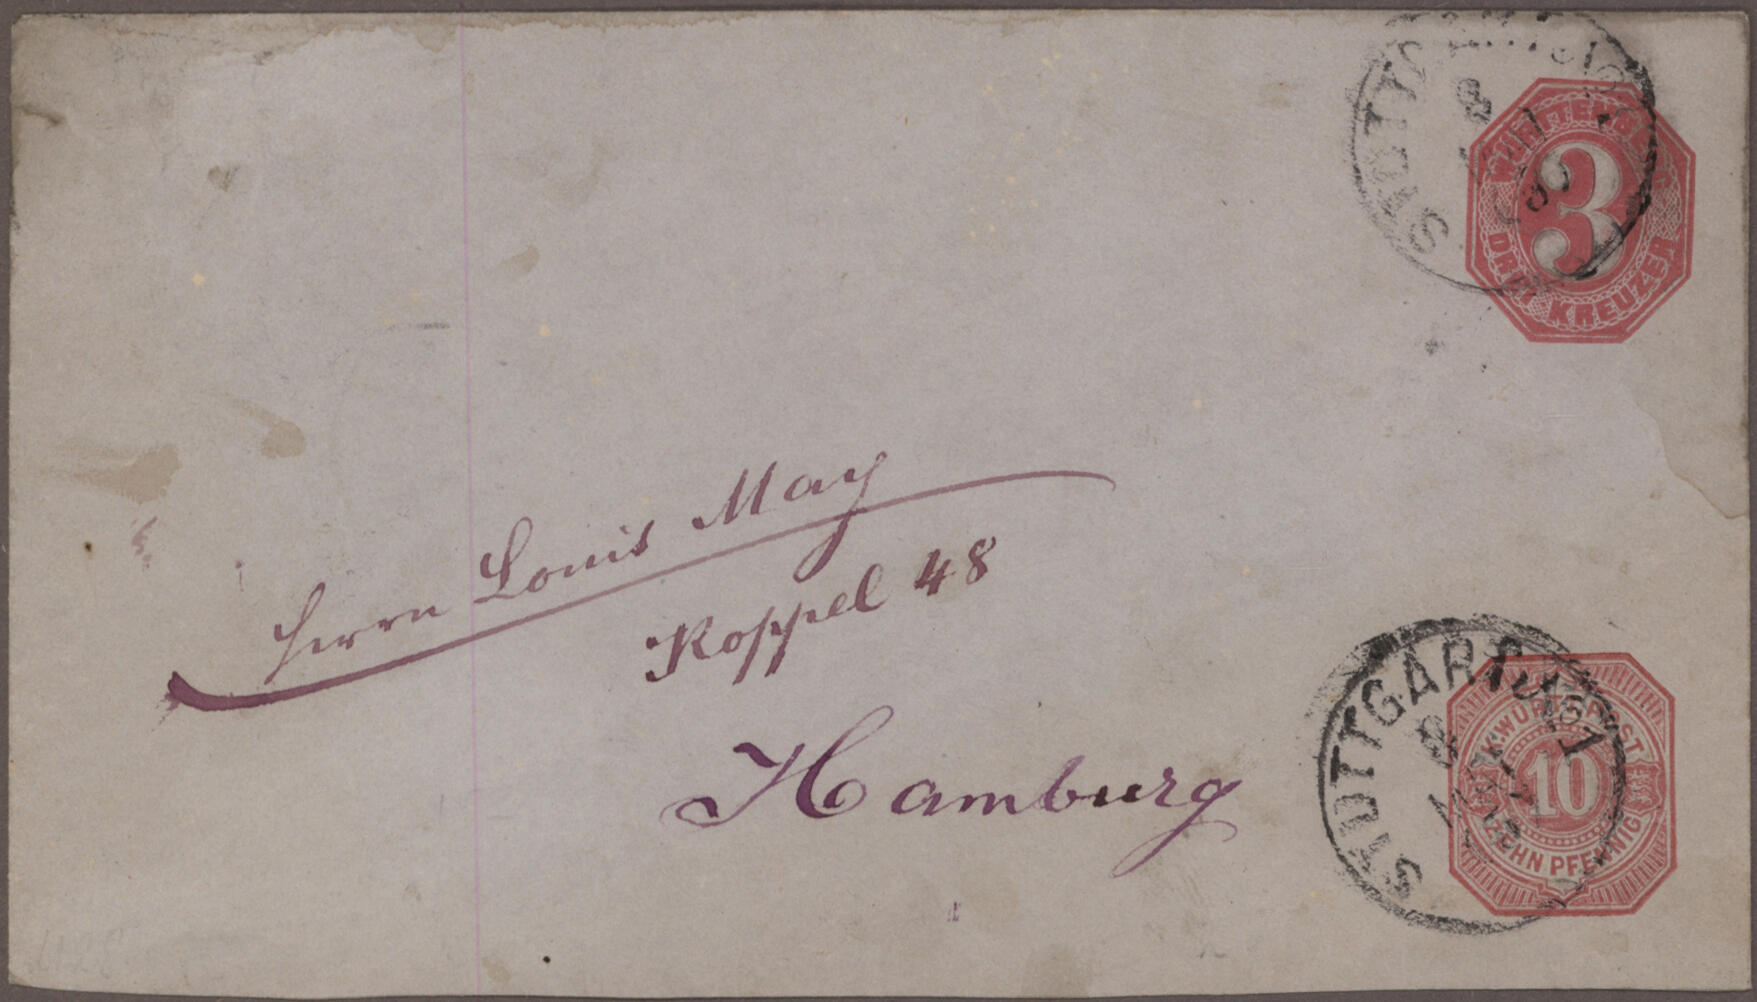 WÜRTTEMBERG
3
DREI KREUZER
STUTTGART
Herrn Louis May
Koppel 48
Hamburg
STUTTGART
K. WÜRTT. POST
10
ZEHN PFENNIG